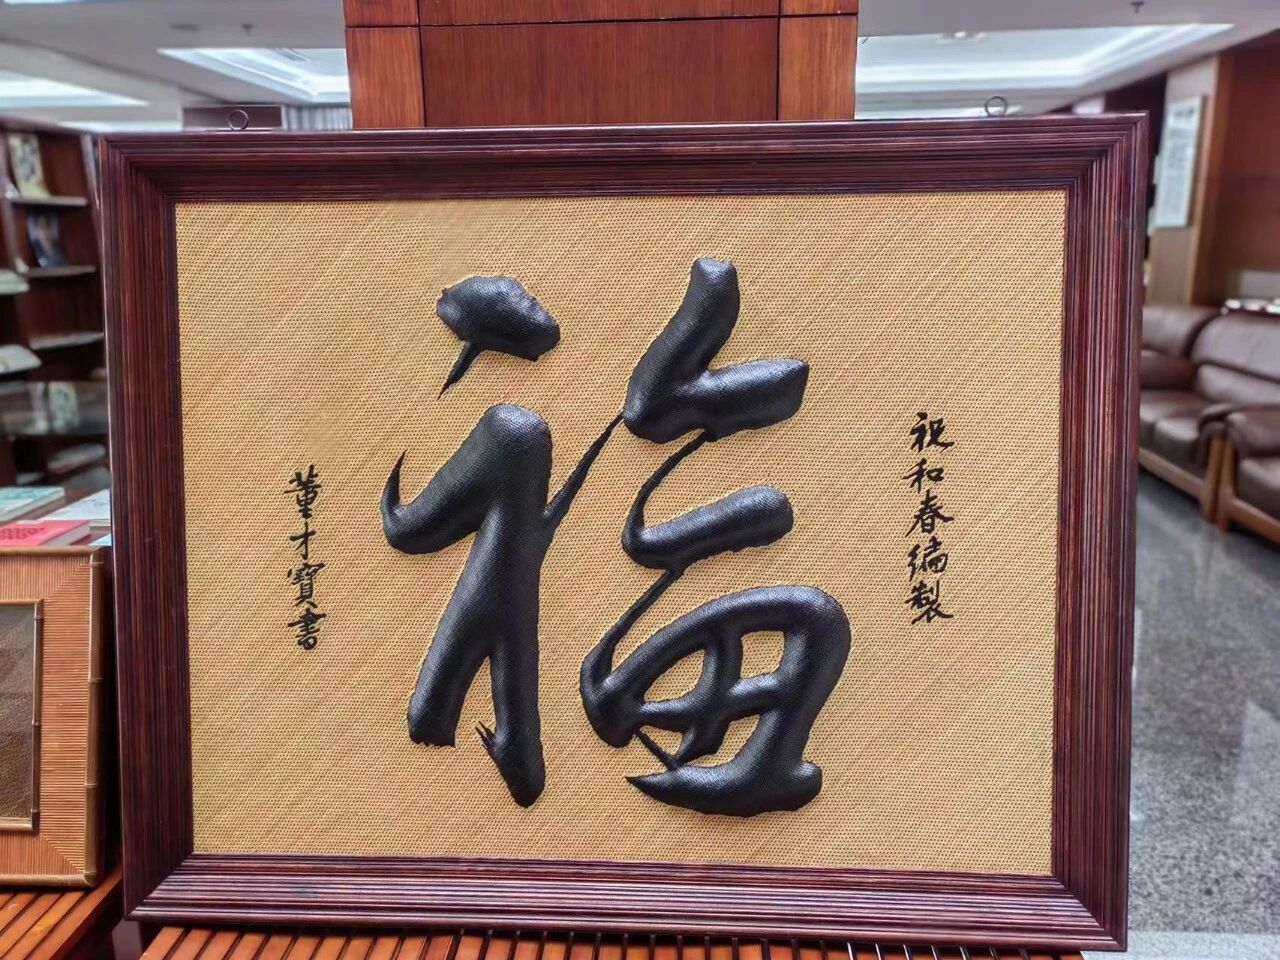 福
祝和春编製
董才寶書